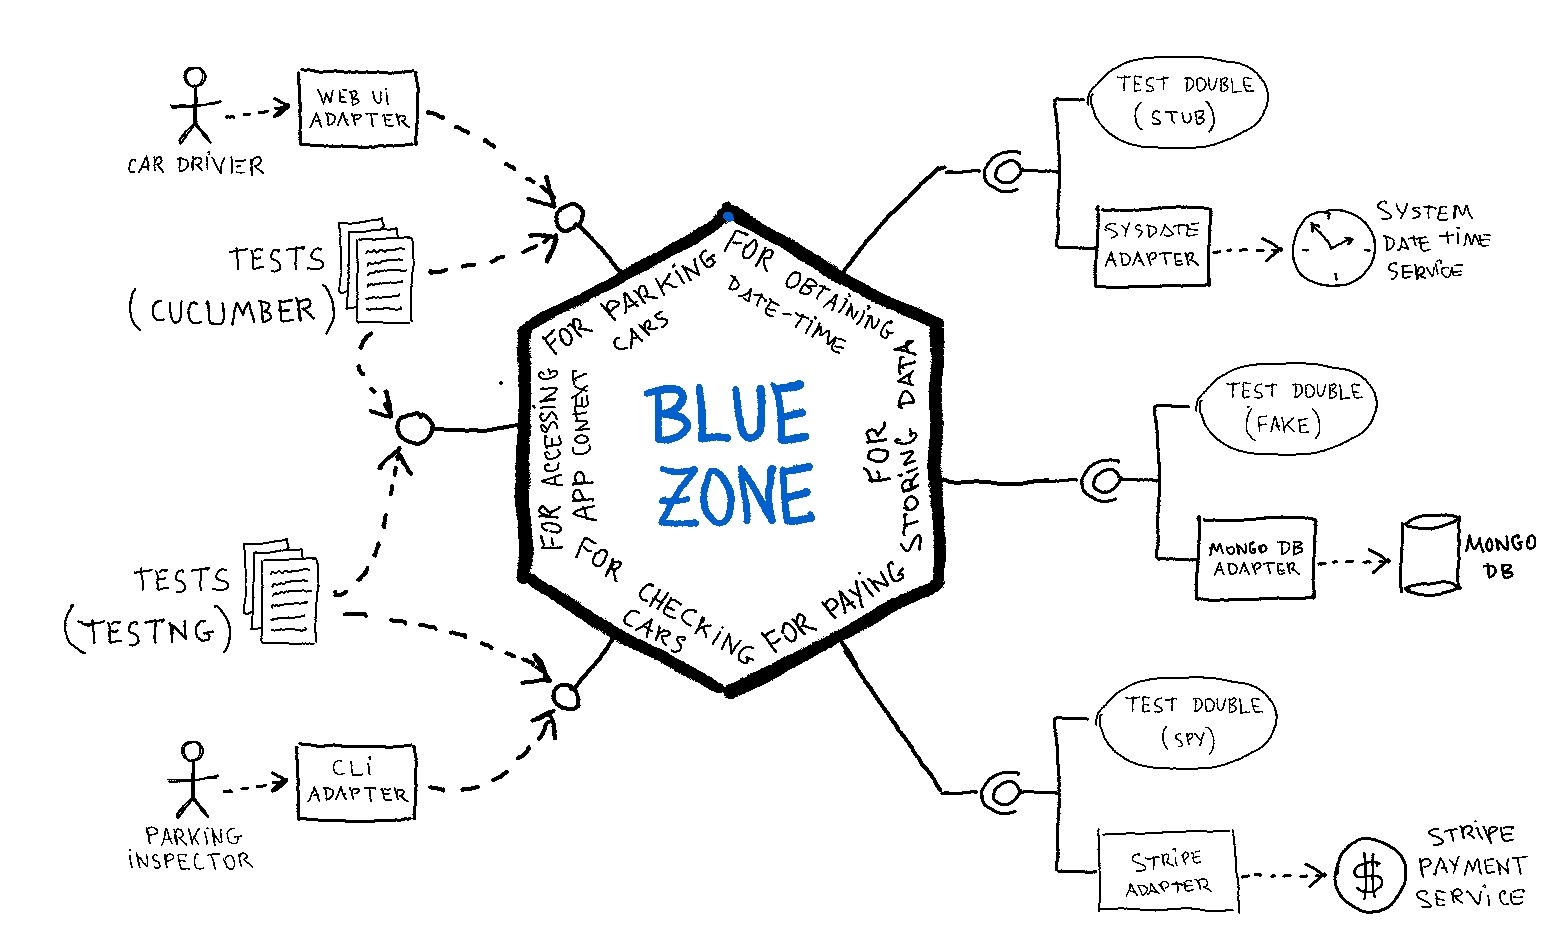 WEB Ui
ADAPTER
CAR DRIVIER
TESTS
(CUCUMBER)
TESTS
(TESTNG)
CLi
ADAPTER
PARKiNG
iNSPECTOR
FOR PARKING
CARS
FOR OBTAiNiNG
DATE-TiME
FOR ACCESSING
APP CONTEXT
BLUE
ZONE
FOR
STORiNG DATA
FOR CHECKiNG
CARS
FOR PAYiNG
TEST DOUBLE
(STUB)
SYSDATE
ADAPTER
SYSTEM
DATE TiME
SERViCE
TEST DOUBLE
(FAKE)
MONGO DB
ADAPTER
MONGO
DB
TEST DOUBLE
(SPY)
STRiPE
ADAPTER
$
STRiPE
PAYMENT
SERViCE